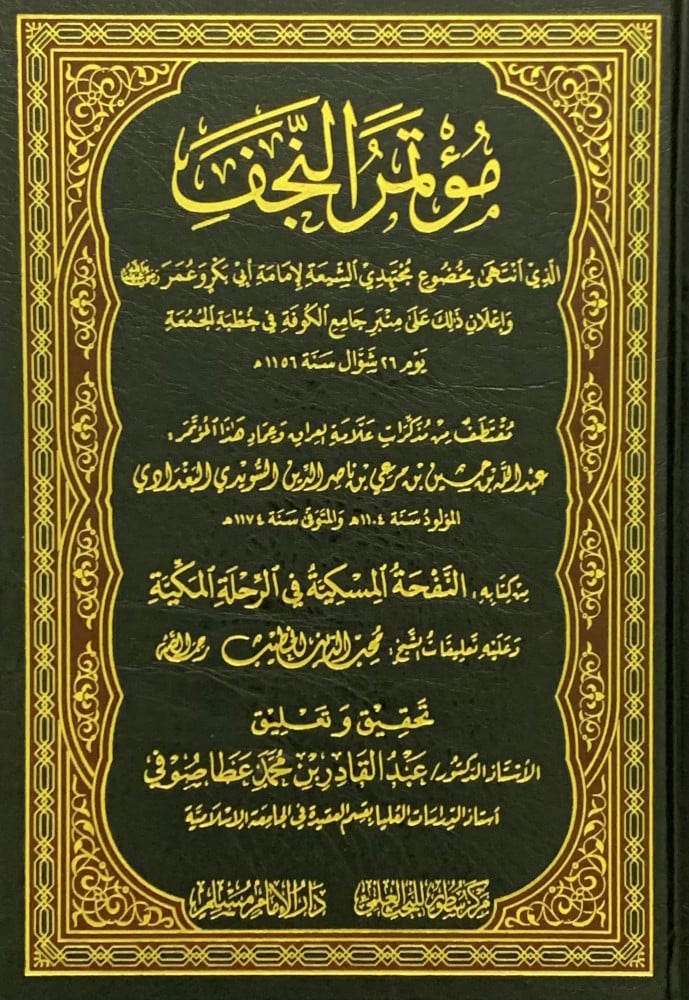 مُؤْتَمَرُ النَّجَفِ
الَّذِي انْتَهَى بِخُضُوعِ مُجْتَهِدِي الشِّيعَةِ لِإِمَامَةِ أَبِي بَكْرٍ وَعُمَرَ رضي الله عنهما
وَإِعْلَانِ ذَلِكَ عَلَى مِنْبَرِ جَامِعِ الكُوفَةِ فِي خُطْبَةِ الجُمُعَةِ
يَوْمَ ٢٦ شَوَّال سَنَةَ ١١٥٦هـ
مُقْتَطَفٌ مِنْ مُذَكِّرَاتِ عَلَّامَةِ العِرَاقِ وَعِمَادِ هَذَا المُؤْتَمَرِ:
عبد الله بن حسين بن مرعي بن ناصر الدين السُّويدي البَغْدَادي
المَوْلُودُ سَنَةَ ١١٠٤هـ وَالمُتَوَفَّى سَنَةَ ١١٧٤هـ
مِنْ كِتَابِهِ: النَّفْحَةُ المِسْكِيَّةُ فِي الرِّحْلَةِ المَكِّيَّةِ
وَعَلَيْهِ تَعْلِيقَاتُ الشَّيْخِ: محب الدين الخطيب رحمه الله
تَحْقِيق وَتَعْلِيق
الأُسْتَاذ الدكتُور/ عَبْدُ القَادِرِ بْنِ مُحَمَّد عَطَا صُوفِي
أستاذ الدِّرَاسَات العُليا بقِسم العقيدة في الجَامعَة الإسْلاميَّة
مركز سطور للبحث العلمي
دَارُ الإِمَامِ مُسْلِم